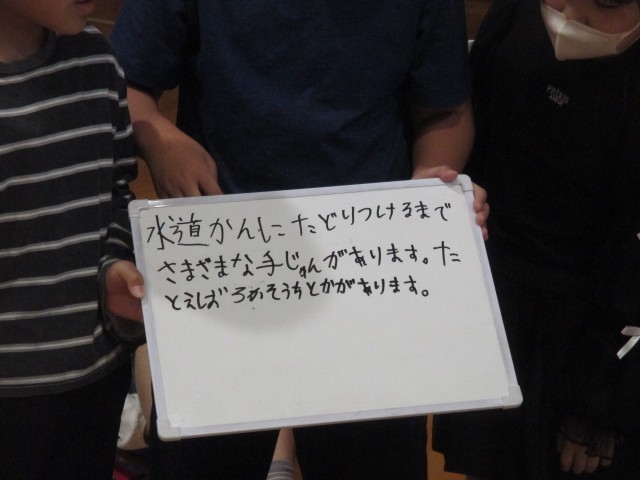 水道かんにたどりつけるまで
さまざまな手じゅんがあります。た
とえばろかそうちとかがあります。